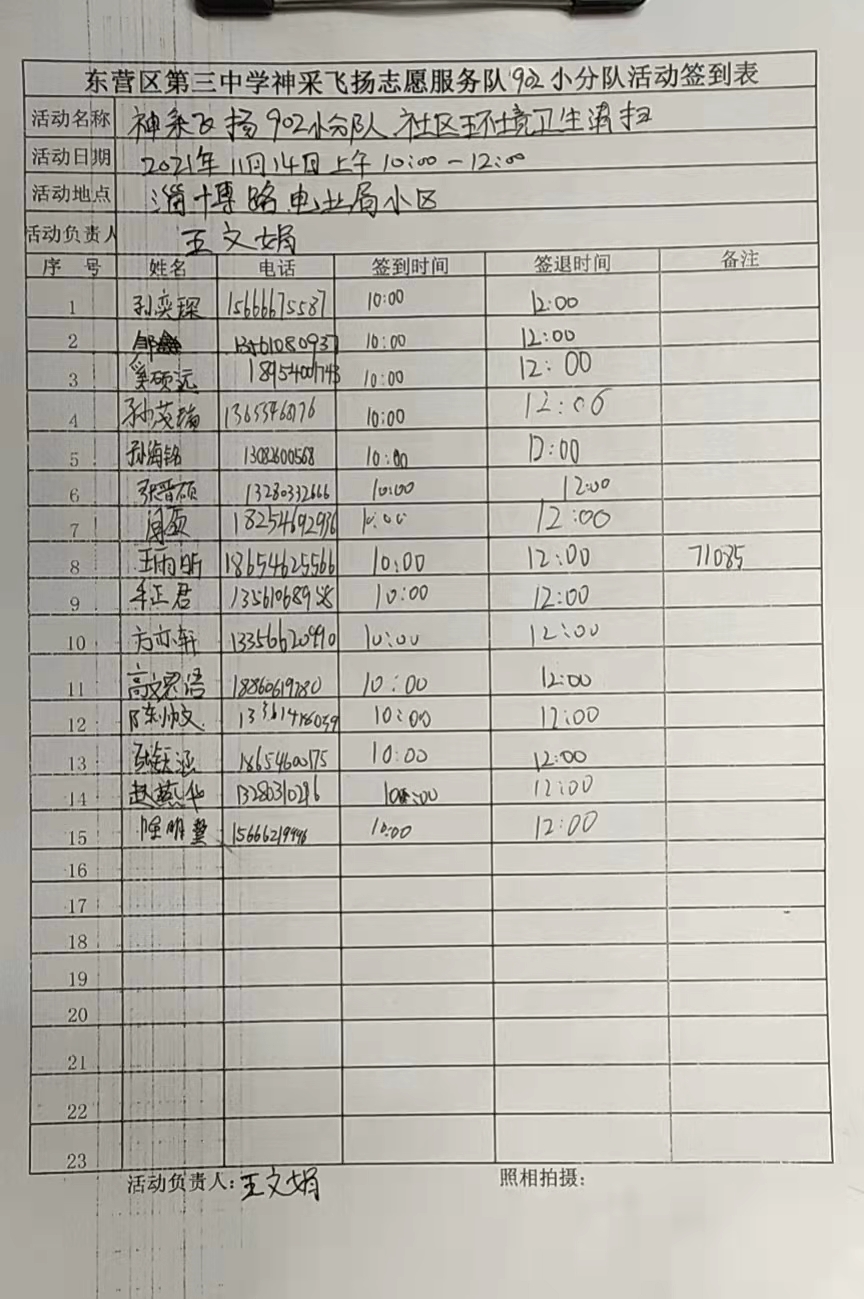 东营区第三中学神采飞扬志愿服务队902小分队活动签到表
活动名称 神采飞扬902小分队 社区环境卫生清扫
活动日期 2021年11月14日上午10:00-12:00
活动地点 淄博路电业局小区
活动负责人 王文娟
序号 姓名 电话 签到时间 签退时间 备注
1 孙奕琛 15666675587 10:00 12:00
2 10:00 12:00
3 奚硕远 18954001743 10:00 12:00
4 孙茂瑞 10:00 12:00
5 孙海铭 13082600568 10:00 12:00
6 张晋硕 13280332666 10:00 12:00
7 18254692936 10:00 12:00
8 王雨昕 18654625566 10:00 12:00 71085
9 牟正君 13561068958 10:00 12:00
10 方亦轩 13356620990 10:00 12:00
11 高文思语 10:00 12:00
12 陈帅文 10:00 12:00
13 18654600175 10:00 12:00
14 赵燕华 10:00 12:00
15 10:00 12:00
16
17
18
19
20
21
22
23
活动负责人:王文娟 照相拍摄: